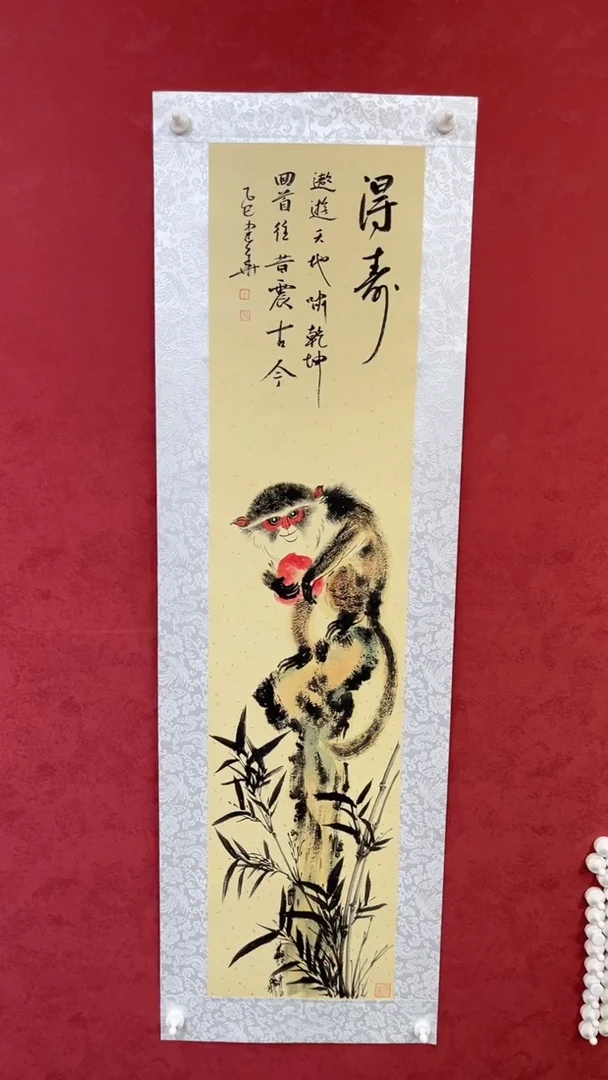 得寿
遨遊天地啸乾坤
回首往昔震古今
乙巳建華